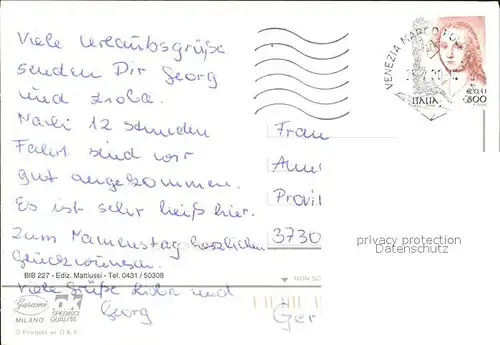 Viele Urlaubsgrüße
senden Dir Georg
und
Nach 12 Stunden
Fahrt sind wir
gut angekommen.
Es ist sehr heiß hier.
Zum Namenstag herzlichen
Glückwunsch.
BIB 227 - Ediz. Mattiussi - Tel. 0431 / 50308
Viele Grüße und
Georg
Garami
MILANO
SPEDISCI
QUALITÀ
VENEZIA MARCO
ITALIA
€ 0,41
800
Frau
Provi
3730
privacy protection
Datenschutz
NON SC
Ger